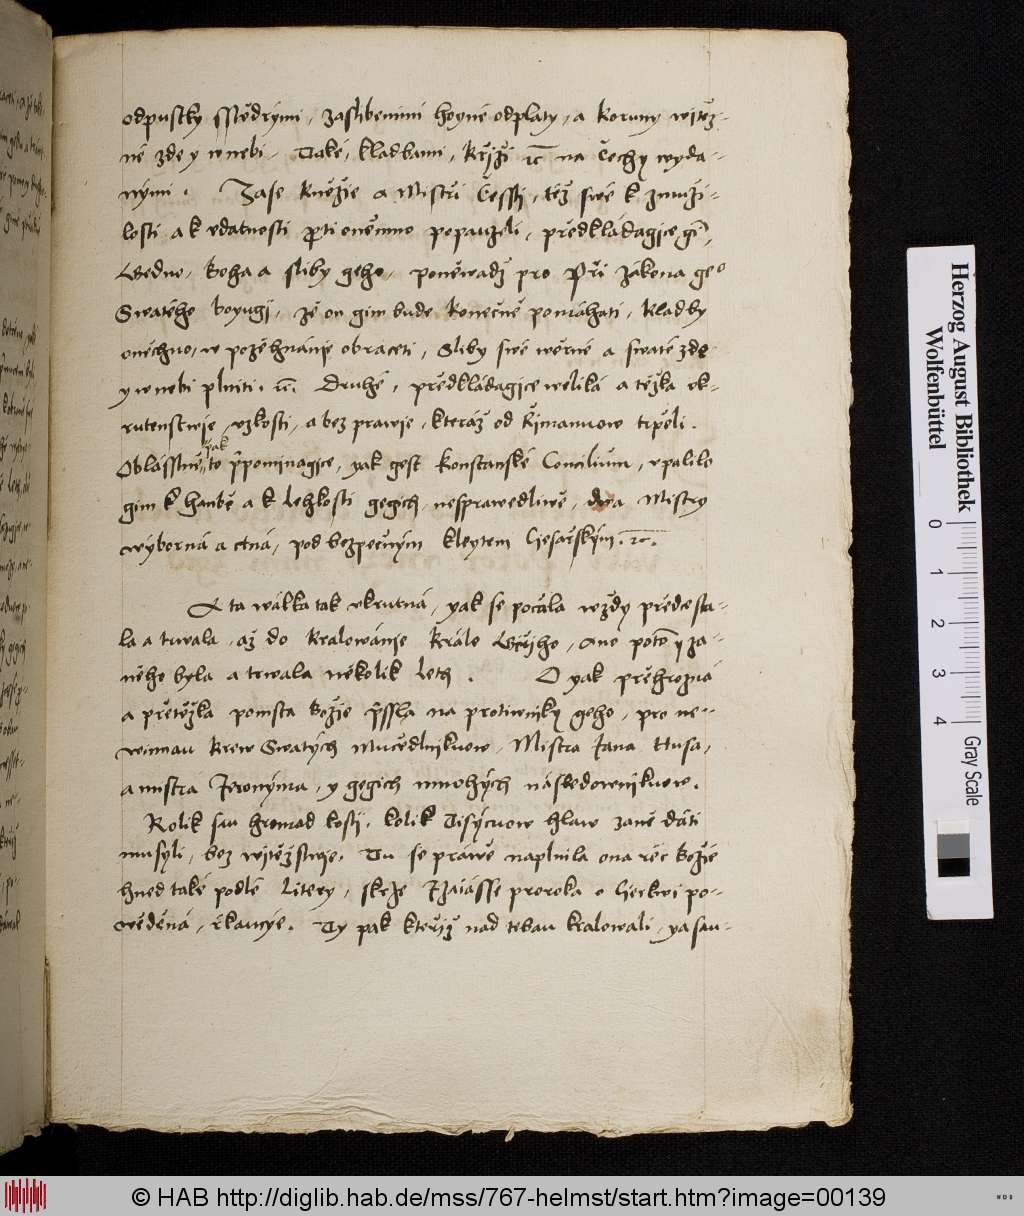 odpustky sstědrými, zaslibenimi hoyné odplaty, a koruny witěz-
né zde y w nebi. Také, kladbami, křjži ꝛc na Čechy wyda-
nými. Zase kněžie a Mistři Čessští, též swé k zmuži-
losti a k vdatnosti proti oněmno popauzeli, předkládagjce gim,
Gedno, Boha a sliby geho, poněwadž pro Při zákona geo
Swatého boyugj, že on gim bude konečně pomáhati, kladby
oněchno, w požehnánie obraceti, sliby swé wěrné a swaté zde
y w nebi plniti. ꝛc. Druhé, předkládagjce weliká a těžka vk-
rutenstwie, vzkosti, a bez prawie, kteráž od Řimanuow trpěli.
pak
Oblásstně, to připominagjce, yak gest Konstanské Concilium, vpalilo
gim k hanbě a k lehkosti gegich, nesprawedliwě, dwa Mistry
wýborná a ctná, pod bezpečným kleytem Cjesařským. ꝛc.
A ta wálka tak vkrutná, yak se počála wždy předce sta-
la a trwala, až do kralowánie krále Giřiho, Ano potom y za
něho byla a trwala několik leth. O yak přehrozná
a přetěžka pomsta Božie přssla na protiwniky geho, pro ne-
winnau krew Swatých mučedlnikuow, Mistra Jana Husa,
a mistra Jeronýma, y gegich mnohých následownikuow.
Kolik sau hromad kostj, kolik Tisýcuow hlaw zaně dáti
musyli, bez wjtězstwie. Tu se práwě naplnila ona řeč Božié
hned také podlé Litery, skrze Jzaiásse proroka o Cierkwi po-
wěděná, řkaucye. Ty pak kteřiž nad tebau kralowali, ya sau-
Herzog August Bibliothek
Wolfenbüttel
0 1 2 3 4
Gray Scale
© HAB http://diglib.hab.de/mss/767-helmst/start.htm?image=00139